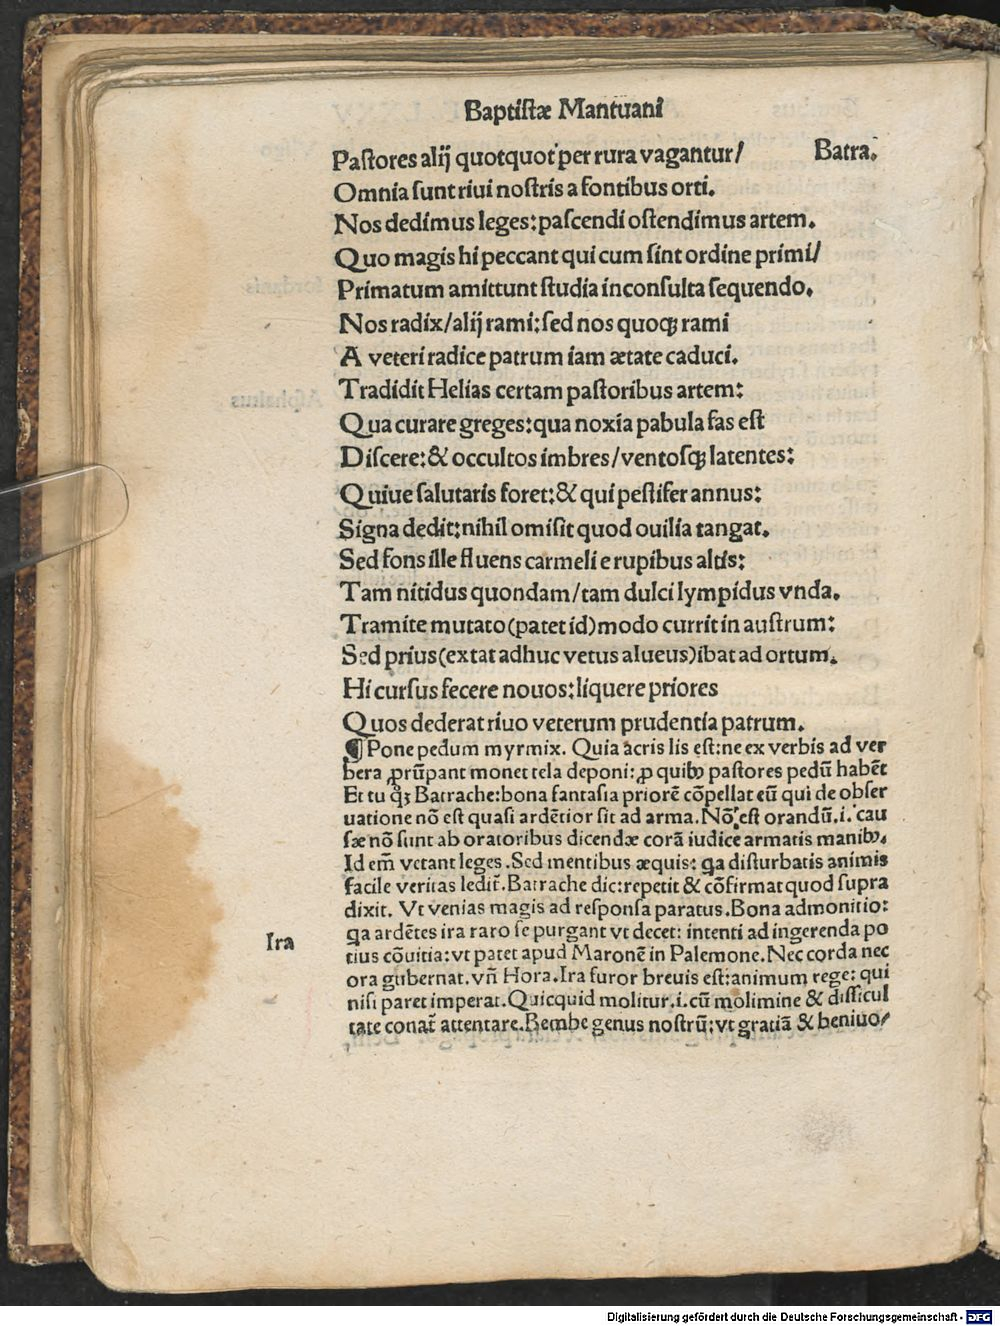 Baptistæ Mantuani
Pastores alij quotquot per rura vagantur/ Batra.
Omnia sunt riui nostris a fontibus orti.
Nos dedimus leges: pascendi ostendimus artem.
Quo magis hi peccant qui cum sint ordine primi/
Primatum amittunt studia inconsulta sequendo.
Nos radix/alij rami: sed nos quoqꝫ rami
A veteri radice patrum iam ætate caduci.
Tradidit Helias certam pastoribus artem:
Qua curare greges: qua noxia pabula fas est
Discere: & occultos imbres/ventosqꝫ latentes:
Quiue salutaris foret: & qui pestifer annus:
Signa dedit: nihil omisit quod ouilia tangat.
Sed fons ille fluens carmeli e rupibus altis:
Tam nitidus quondam/tam dulci lympidus vnda.
Tramite mutato (patet id) modo currit in austrum:
Sed prius (extat adhuc vetus alueus) ibat ad ortum.
Hi cursus fecere nouos: liquere priores
Quos dederat riuo veterum prudentia patrum.
¶ Pone pedum myrmix. Quia acris lis est: ne ex verbis ad ver
bera ꝓrũpant monet tela deponi: ꝓ quibꝰ pastores pedũ habẽt
Et tu q̃ꝫ Batrache: bona fantasia priorẽ cõpellat eũ qui de obser
uatione nõ est quasi ardẽtior sit ad arma. Nõ est orandũ .i. cau
sæ nõ sunt ab oratoribus dicendæ corã iudice armatis manibꝰ.
Id em̃ vetant leges. Sed mentibus æquis: qa disturbatis animis
facile veritas ledit᷑. Batrache dic: repetit & cõfirmat quod supra
dixit. Vt venias magis ad responsa paratus. Bona admonitio:
qa ardẽtes ira raro se purgant vt decet: intenti ad ingerenda po
Ira
tius cõuitia: vt patet apud Maronẽ in Palemone. Nec corda nec
ora gubernat. vñ Hora. Ira furor breuis est: animum rege: qui
nisi paret imperat. Quicquid molitur .i. cũ molimine & difficul
tate conat᷑ attentare. Bembe genus nostrũ: vt gratiã & beniuo/
Digitalisierung gefördert durch die Deutsche Forschungsgemeinschaft - DFG